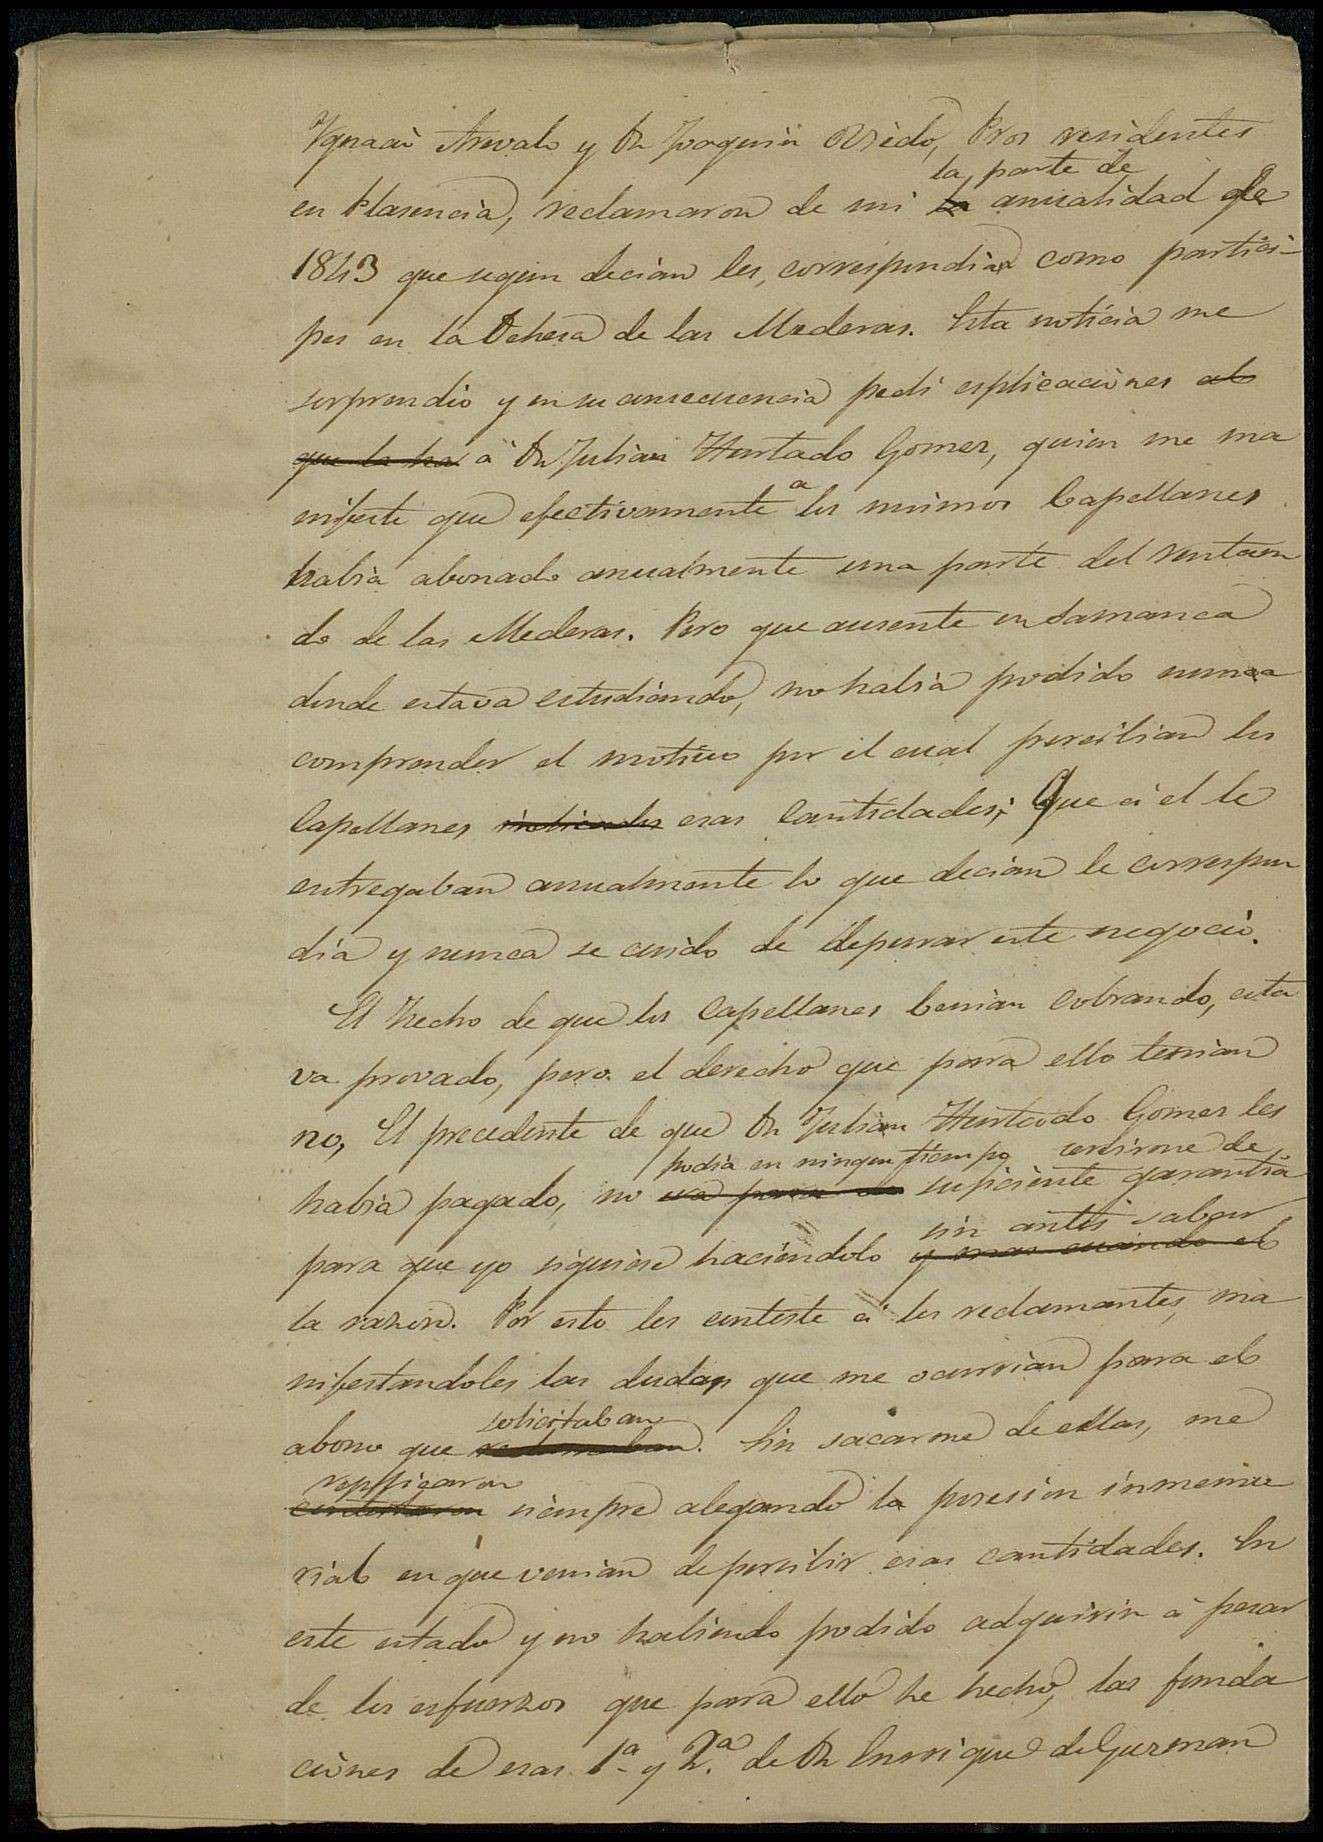 Ygnacio Arevalo y Dn Joaquin Oviedo, Pros residentes
la parte de
en Plasencia, reclamaron de mi la anualidad de
1843 que segun decian les, correspondia como partici-
pes en la Dehesa de las Mederas. Esta noticia me
sorprendio y en su consecuencia pedi esplicaciones al
que la ha á Dn Julian Hurtado Gomez, quien me ma
nifesto que efectivamente a los mismos Capellanes
habia abonado anualmente una parte del rentuan
do de las Mederas. Pero que ausente en Samanca
donde estava estudiando, no habia podido nunca
comprender el motivo por el cual percibian los
Capellanes indicados esas Cantidades; Que á el le
entregaban anualmente lo que decian le correspon
dia y nunca se cuido de depurar este negocio.
El hecho de que los Capellanes benian Cobrando, esta
va provado, pero el derecho que para ello tenian
no, El precedente de que Dn Julian Hurtado Gomez les
podia en ningun tiempo servirme de
habia pagado, no era para suficiente garantia
sin antes saber
para que yo siguiese haciendolo y mas cuando el
la razon. Por esto les conteste á los reclamantes, ma
nifestandoles las dudas que me ocurrian para el
solicitaban
abono que reclamaban. Sin sacarme de ellas, me
replicaron
contestaron siempre alegando la posesion inmemo
rial en que venian de percibir esas cantidades. En
este estado y no habiendo podido adquirir á pesar
de los esfuerzos que para ello he hecho, las funda
ciones de esas 1.a y 2.a de Dn Enrrique de Guzman